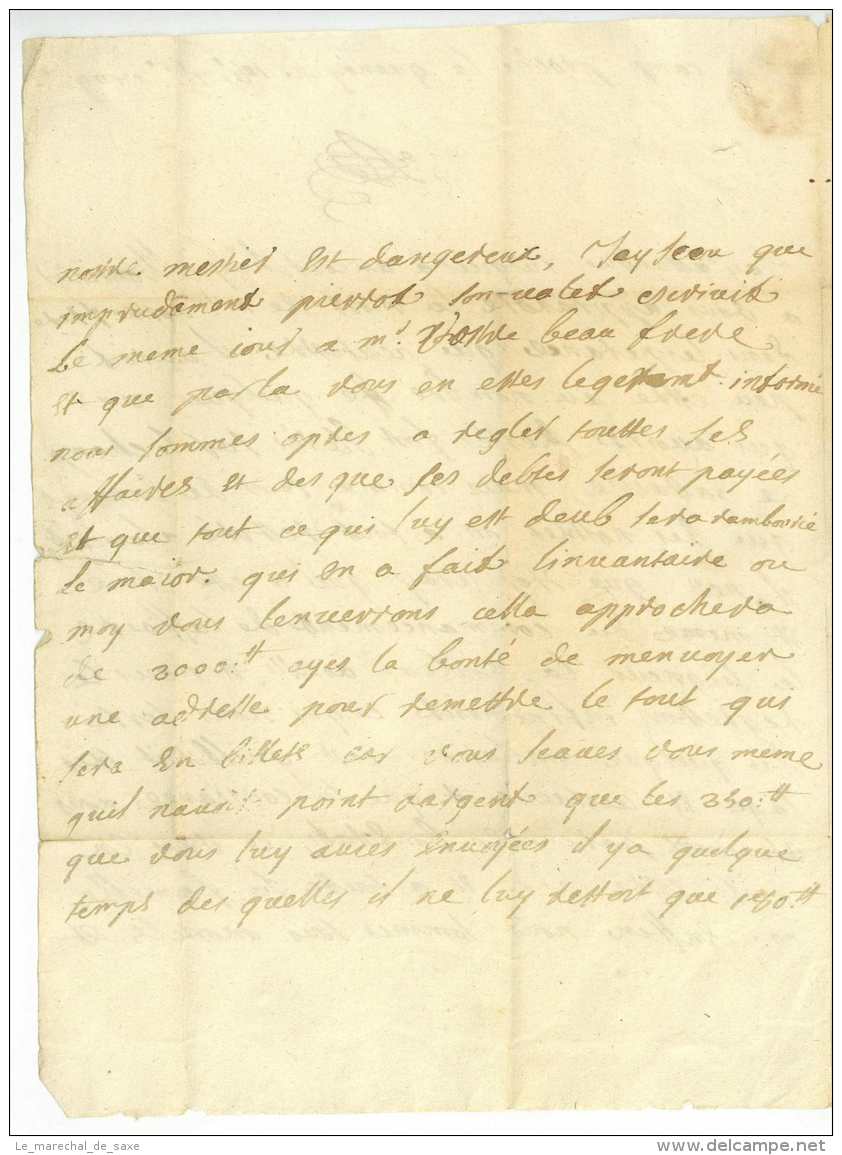 nostre mestier est dangereux, Jay sceu que
imprudament pierrot son valet escrivit
Le meme iour a mr. Vostre beau frere
Et que par la vous en estes informé
nous sommes apres a regler touttes ses
affaires Et des que ses debtes seront payées
Et que tout ce qui luy est deub sera rambourcé
Le maior. qui en a fait linuantaire ou
moy vous lenuerrons cella approchera
de 2000:tt ayes la bonté de menvoyer
une adresse pour remettre le tout qui
sera En billets car vous scaves vous meme
quil navoit point dargent que les 250:tt
que vous luy aviés Envoyées il ya quelque
temps des quelles il ne luy restoit que 150:tt
Le_marechal_de_saxe
www.delcampe.net